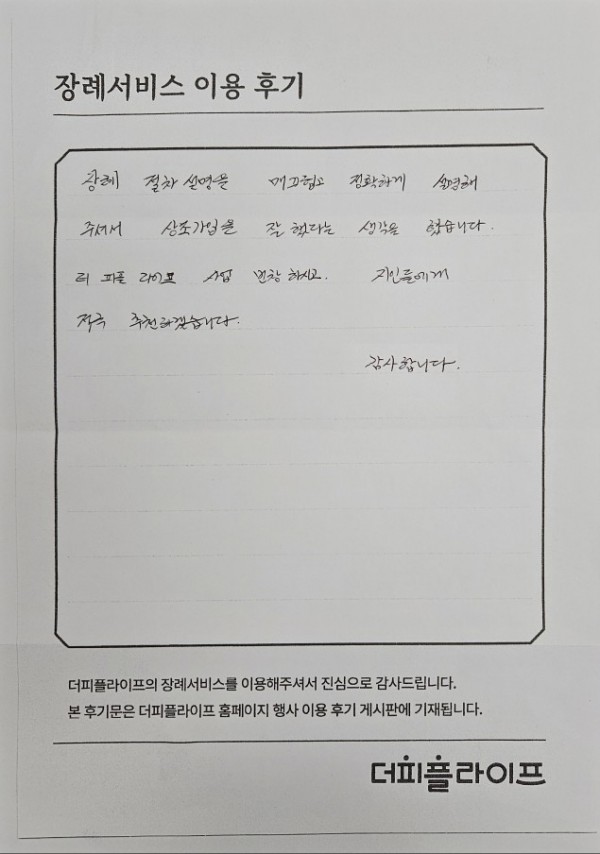 장례서비스 이용 후기
장례 절차 설명을 매끄럽고 정확하게 설명해
주셔서 상조가입을 잘 했다는 생각을 했습니다.
더 피플 라이프 사업 번창 하시고. 지인들에게
적극 추천하겠습니다.
감사합니다.
더피플라이프의 장례서비스를 이용해주셔서 진심으로 감사드립니다.
본 후기문은 더피플라이프 홈페이지 행사 이용 후기 게시판에 기재됩니다.
더피플라이프